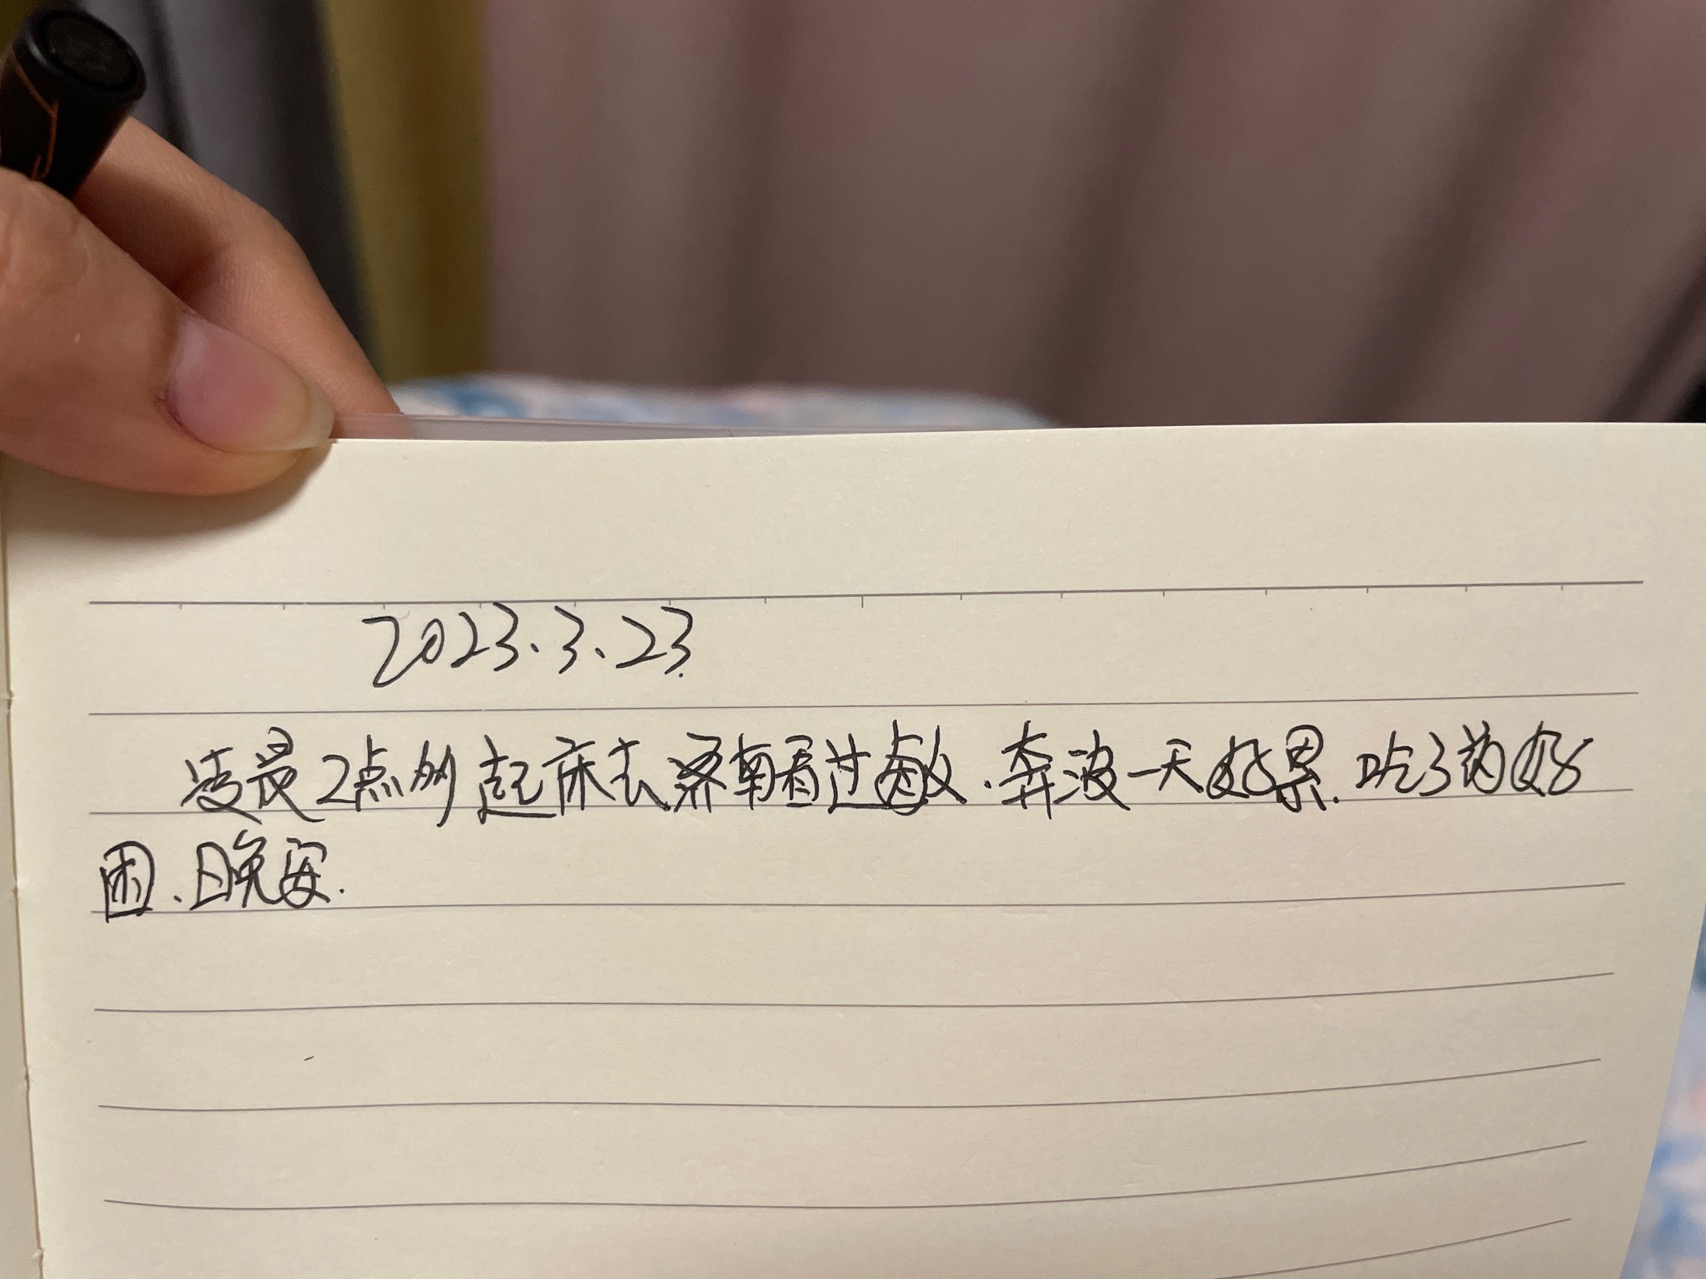 2023.3.23.
凌晨2点多起床去济南看过敏.奔波一天好累.吃了药好
困.晚安.